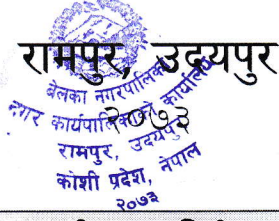 रामपुर, उदयपुर
२०७३
बेलका नगरपालिका
नगर कार्यपालिकाको कार्यालय
रामपुर, उदयपुर
कोशी प्रदेश, नेपाल
२०७३